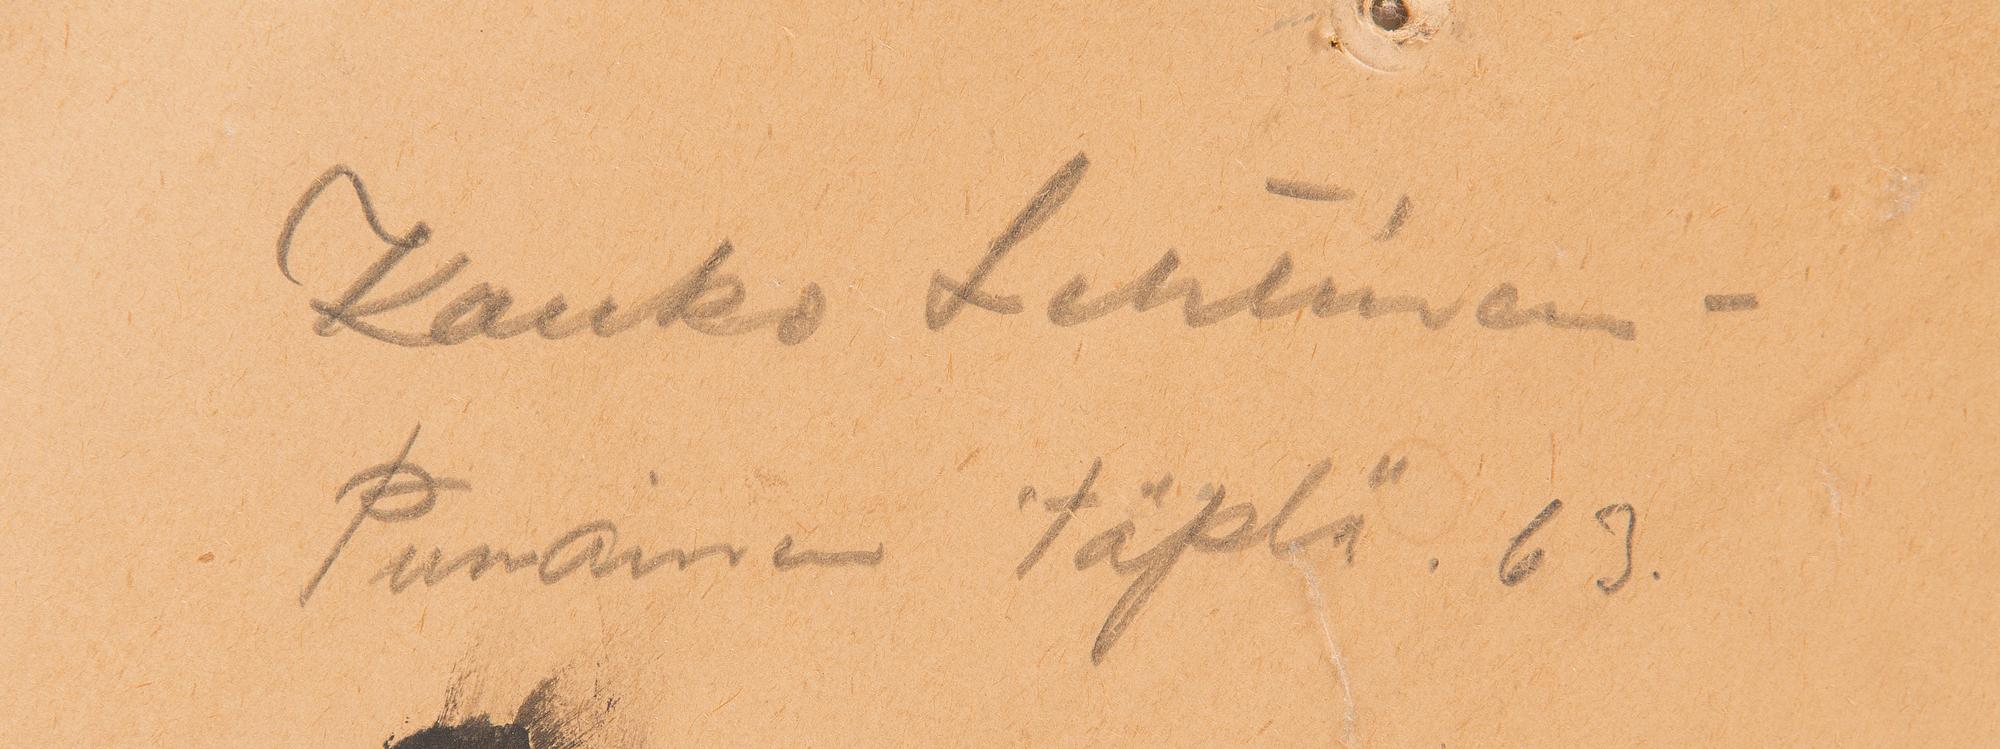 Kauko Lehtinen -
Punainen "täplä". 63.